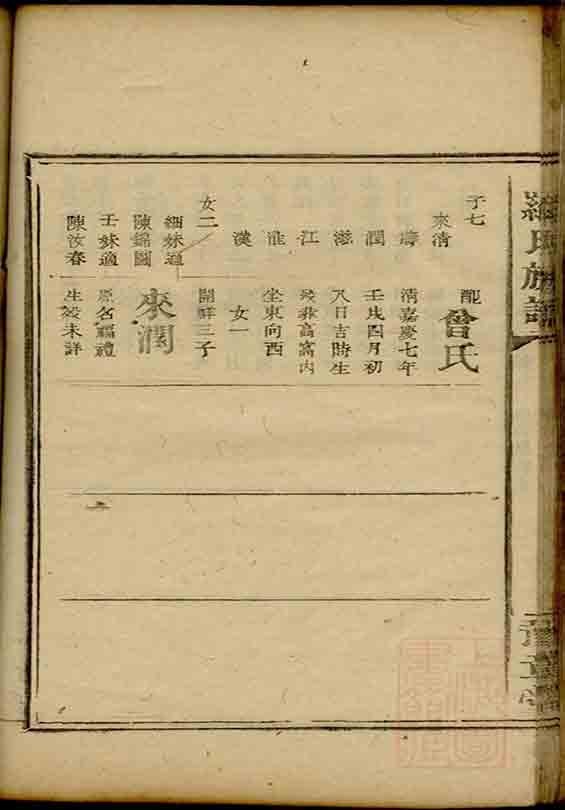 羅氏族譜
豫章堂
子七
來清
濤
潤
滋
江
淮
漢
女二
細妹適
陳錦圖
壬妹適
陳汝春
配曾氏
清嘉慶七年
壬戌四月初
八日吉時生
歿葬高窩內
坐東向西
女一
開鮮三子
來潤
原名福禮
生歿未詳